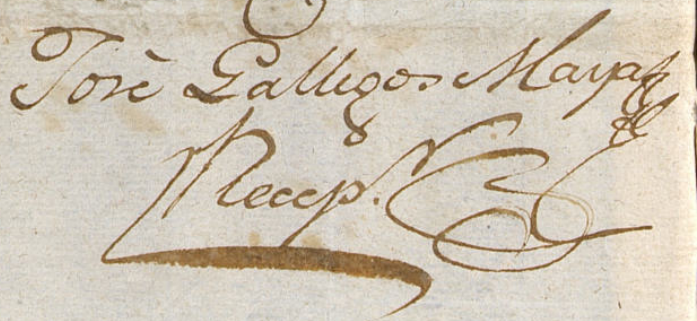 José Gallegos Maya
Recep.